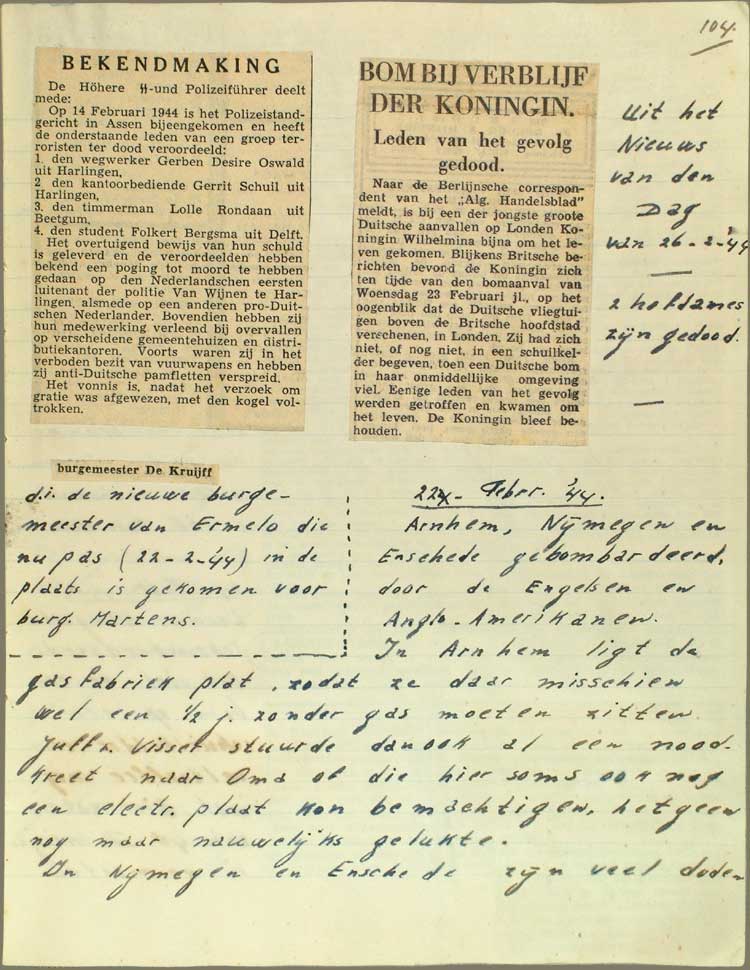 104.
BEKENDMAKING
De Höhere ᛋᛋ-und Polizeiführer deelt
mede:
Op 14 Februari 1944 is het Polizeistand-
gericht in Assen bijeengekomen en heeft
de onderstaande leden van een groep ter-
roristen ter dood veroordeeld:
1. den wegwerker Gerben Desire Oswald
uit Harlingen,
2 den kantoorbediende Gerrit Schuil uit
Harlingen,
3. den timmerman Lolle Rondaan uit
Beetgum,
4. den student Folkert Bergsma uit Delft.
Het overtuigend bewijs van hun schuld
is geleverd en de veroordeelden hebben
bekend een poging tot moord te hebben
gedaan op den Nederlandschen eersten
luitenant der politie Van Wijnen te Har-
lingen, alsmede op een anderen pro-Duit-
schen Nederlander. Bovendien hebben zij
hun medewerking verleend bij overvallen
op verscheidene gemeentehuizen en distri-
butiekantoren. Voorts waren zij in het
verboden bezit van vuurwapens en hebben
zij anti-Duitsche pamfletten verspreid.
Het vonnis is, nadat het verzoek om
gratie was afgewezen, met den kogel vol-
trokken.
BOM BIJ VERBLIJF
DER KONINGIN.
Leden van het gevolg
gedood.
Naar de Berlijnsche correspon-
dent van het „Alg. Handelsblad"
meldt, is bij een der jongste groote
Duitsche aanvallen op Londen Ko-
ningin Wilhelmina bijna om het le-
ven gekomen. Blijkens Britsche be-
richten bevond de Koningin zich
ten tijde van den bomaanval van
Woensdag 23 Februari jl., op het
oogenblik dat de Duitsche vliegtui-
gen boven de Britsche hoofdstad
verschenen, in Londen. Zij had zich
niet, of nog niet, in een schuilkel-
der begeven, toen een Duitsche bom
in haar onmiddellijke omgeving
viel. Eenige leden van het gevolg
werden getroffen en kwamen om
het leven. De Koningin bleef be-
houden.
Uit het
Nieuws
van den
Dag
van 26-2-'44
—
2 hofdames
zijn gedood.
—
burgemeester De Kruijff
d.i. de nieuwe burge-
meester van Ermelo die
nu pas (22-2-'44) in de
plaats is gekomen voor
burg. Martens.
22 - Febr. '44.
Arnhem, Nijmegen en
Enschede gebombardeerd,
door de Engelsen en
Anglo-Amerikanen.
In Arnhem ligt de
gasfabriek plat, zodat ze daar misschien
wel een ½ j. zonder gas moeten zitten
Juff. v. Visser stuurde dan ook al een nood-
kreet naar Oma of die hier soms ook nog
een electr. plaat kon bemachtigen, hetgeen
nog maar nauwelijks gelukte.
In Nijmegen en Enschede zijn veel doden